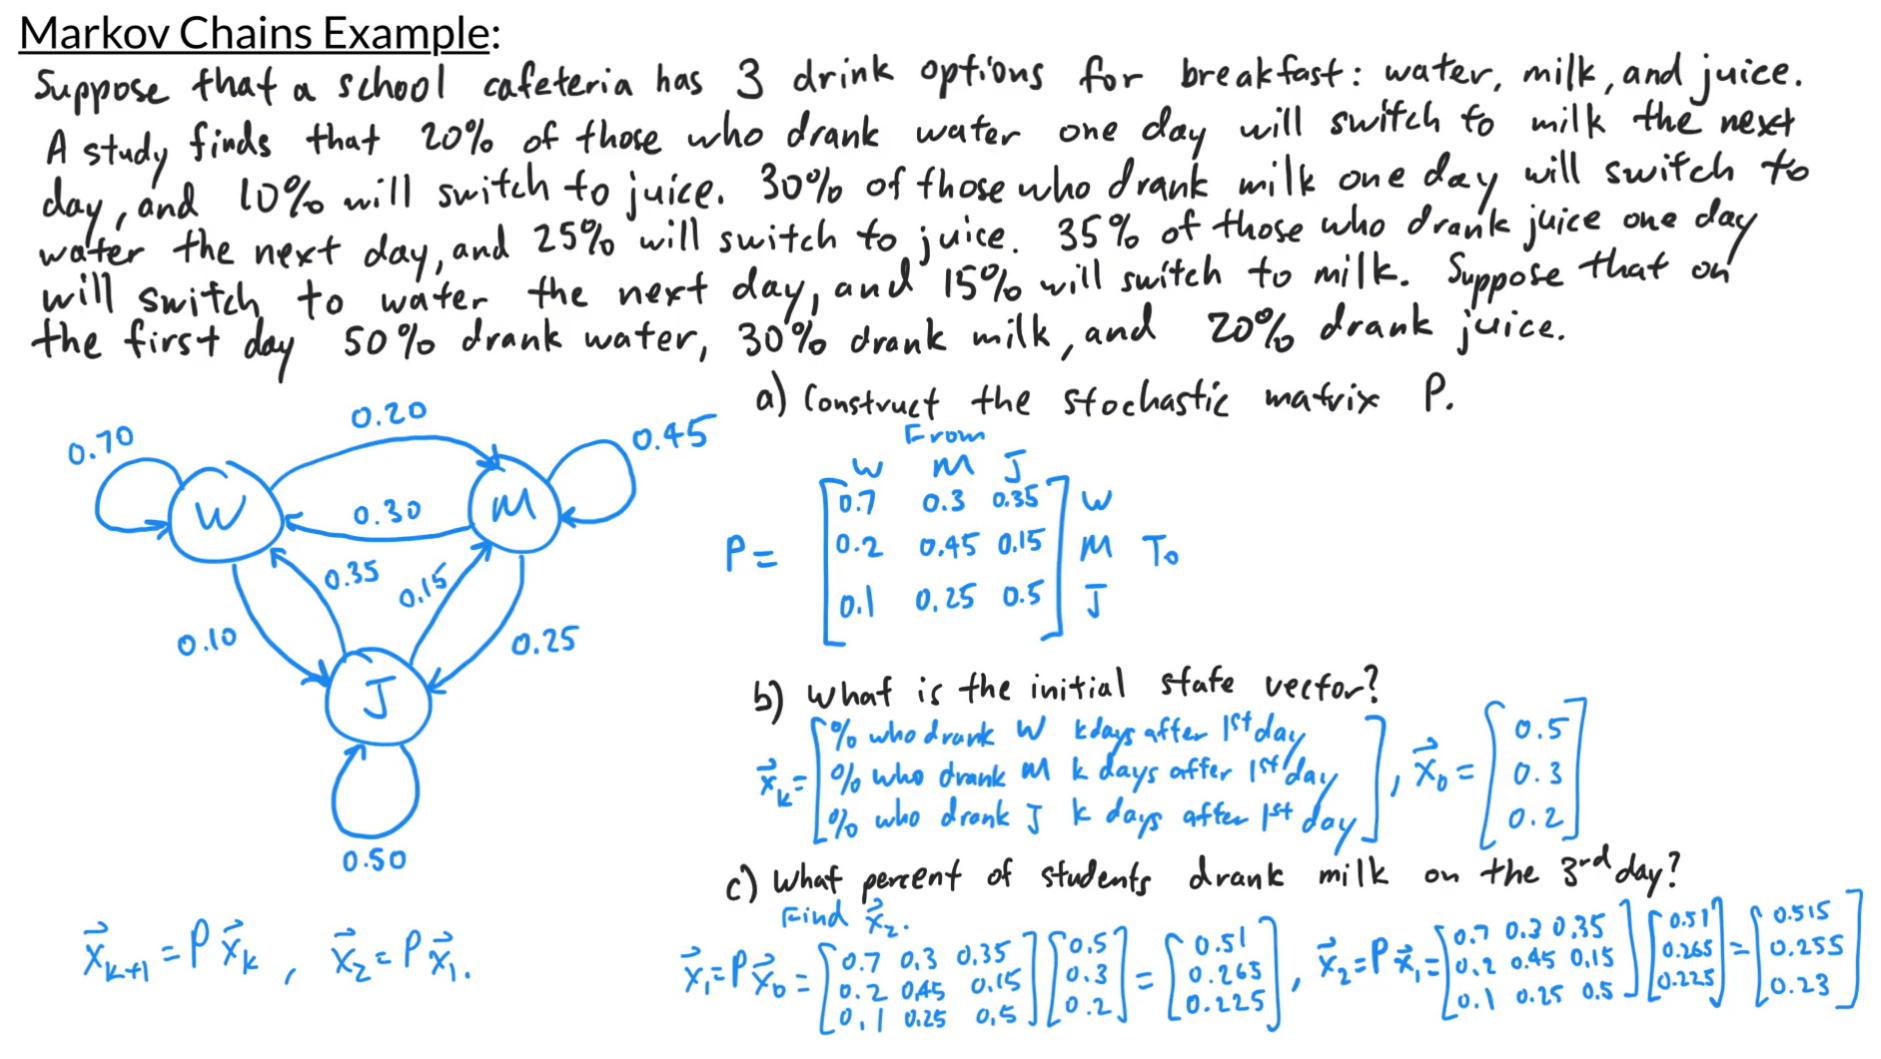 Markov Chains Example:
Suppose that a school cafeteria has 3 drink options for breakfast: water, milk, and juice.
A study finds that 20% of those who drank water one day will switch to milk the next
day, and 10% will switch to juice. 30% of those who drank milk one day will switch to
water the next day, and 25% will switch to juice. 35% of those who drank juice one day
will switch to water the next day, and 15% will switch to milk. Suppose that on
the first day 50% drank water, 30% drank milk, and 20% drank juice.
0.70 0.20 0.45
W 0.30 M
0.35 0.15
0.10 0.25
J
0.50
x⃗ₖ₊₁ = P x⃗ₖ , x⃗₂ = P x⃗₁.
a) Construct the stochastic matrix P.
From
W M J
0.7 0.3 0.35 W
P = 0.2 0.45 0.15 M To
0.1 0.25 0.5 J
b) What is the initial state vector?
% who drank W k days after 1st day
x⃗ₖ = % who drank M k days after 1st day , x⃗₀ = [0.5 0.3 0.2]
% who drank J k days after 1st day
c) What percent of students drank milk on the 3rd day?
Find x⃗₂.
0.7 0.3 0.35 0.5 0.51 0.7 0.3 0.35 0.51 0.515
x⃗₁ = P x⃗₀ = 0.2 0.45 0.15 0.3 = 0.265 , x⃗₂ = P x⃗₁ = 0.2 0.45 0.15 0.265 = 0.255
0.1 0.25 0.5 0.2 0.225 0.1 0.25 0.5 0.225 0.23